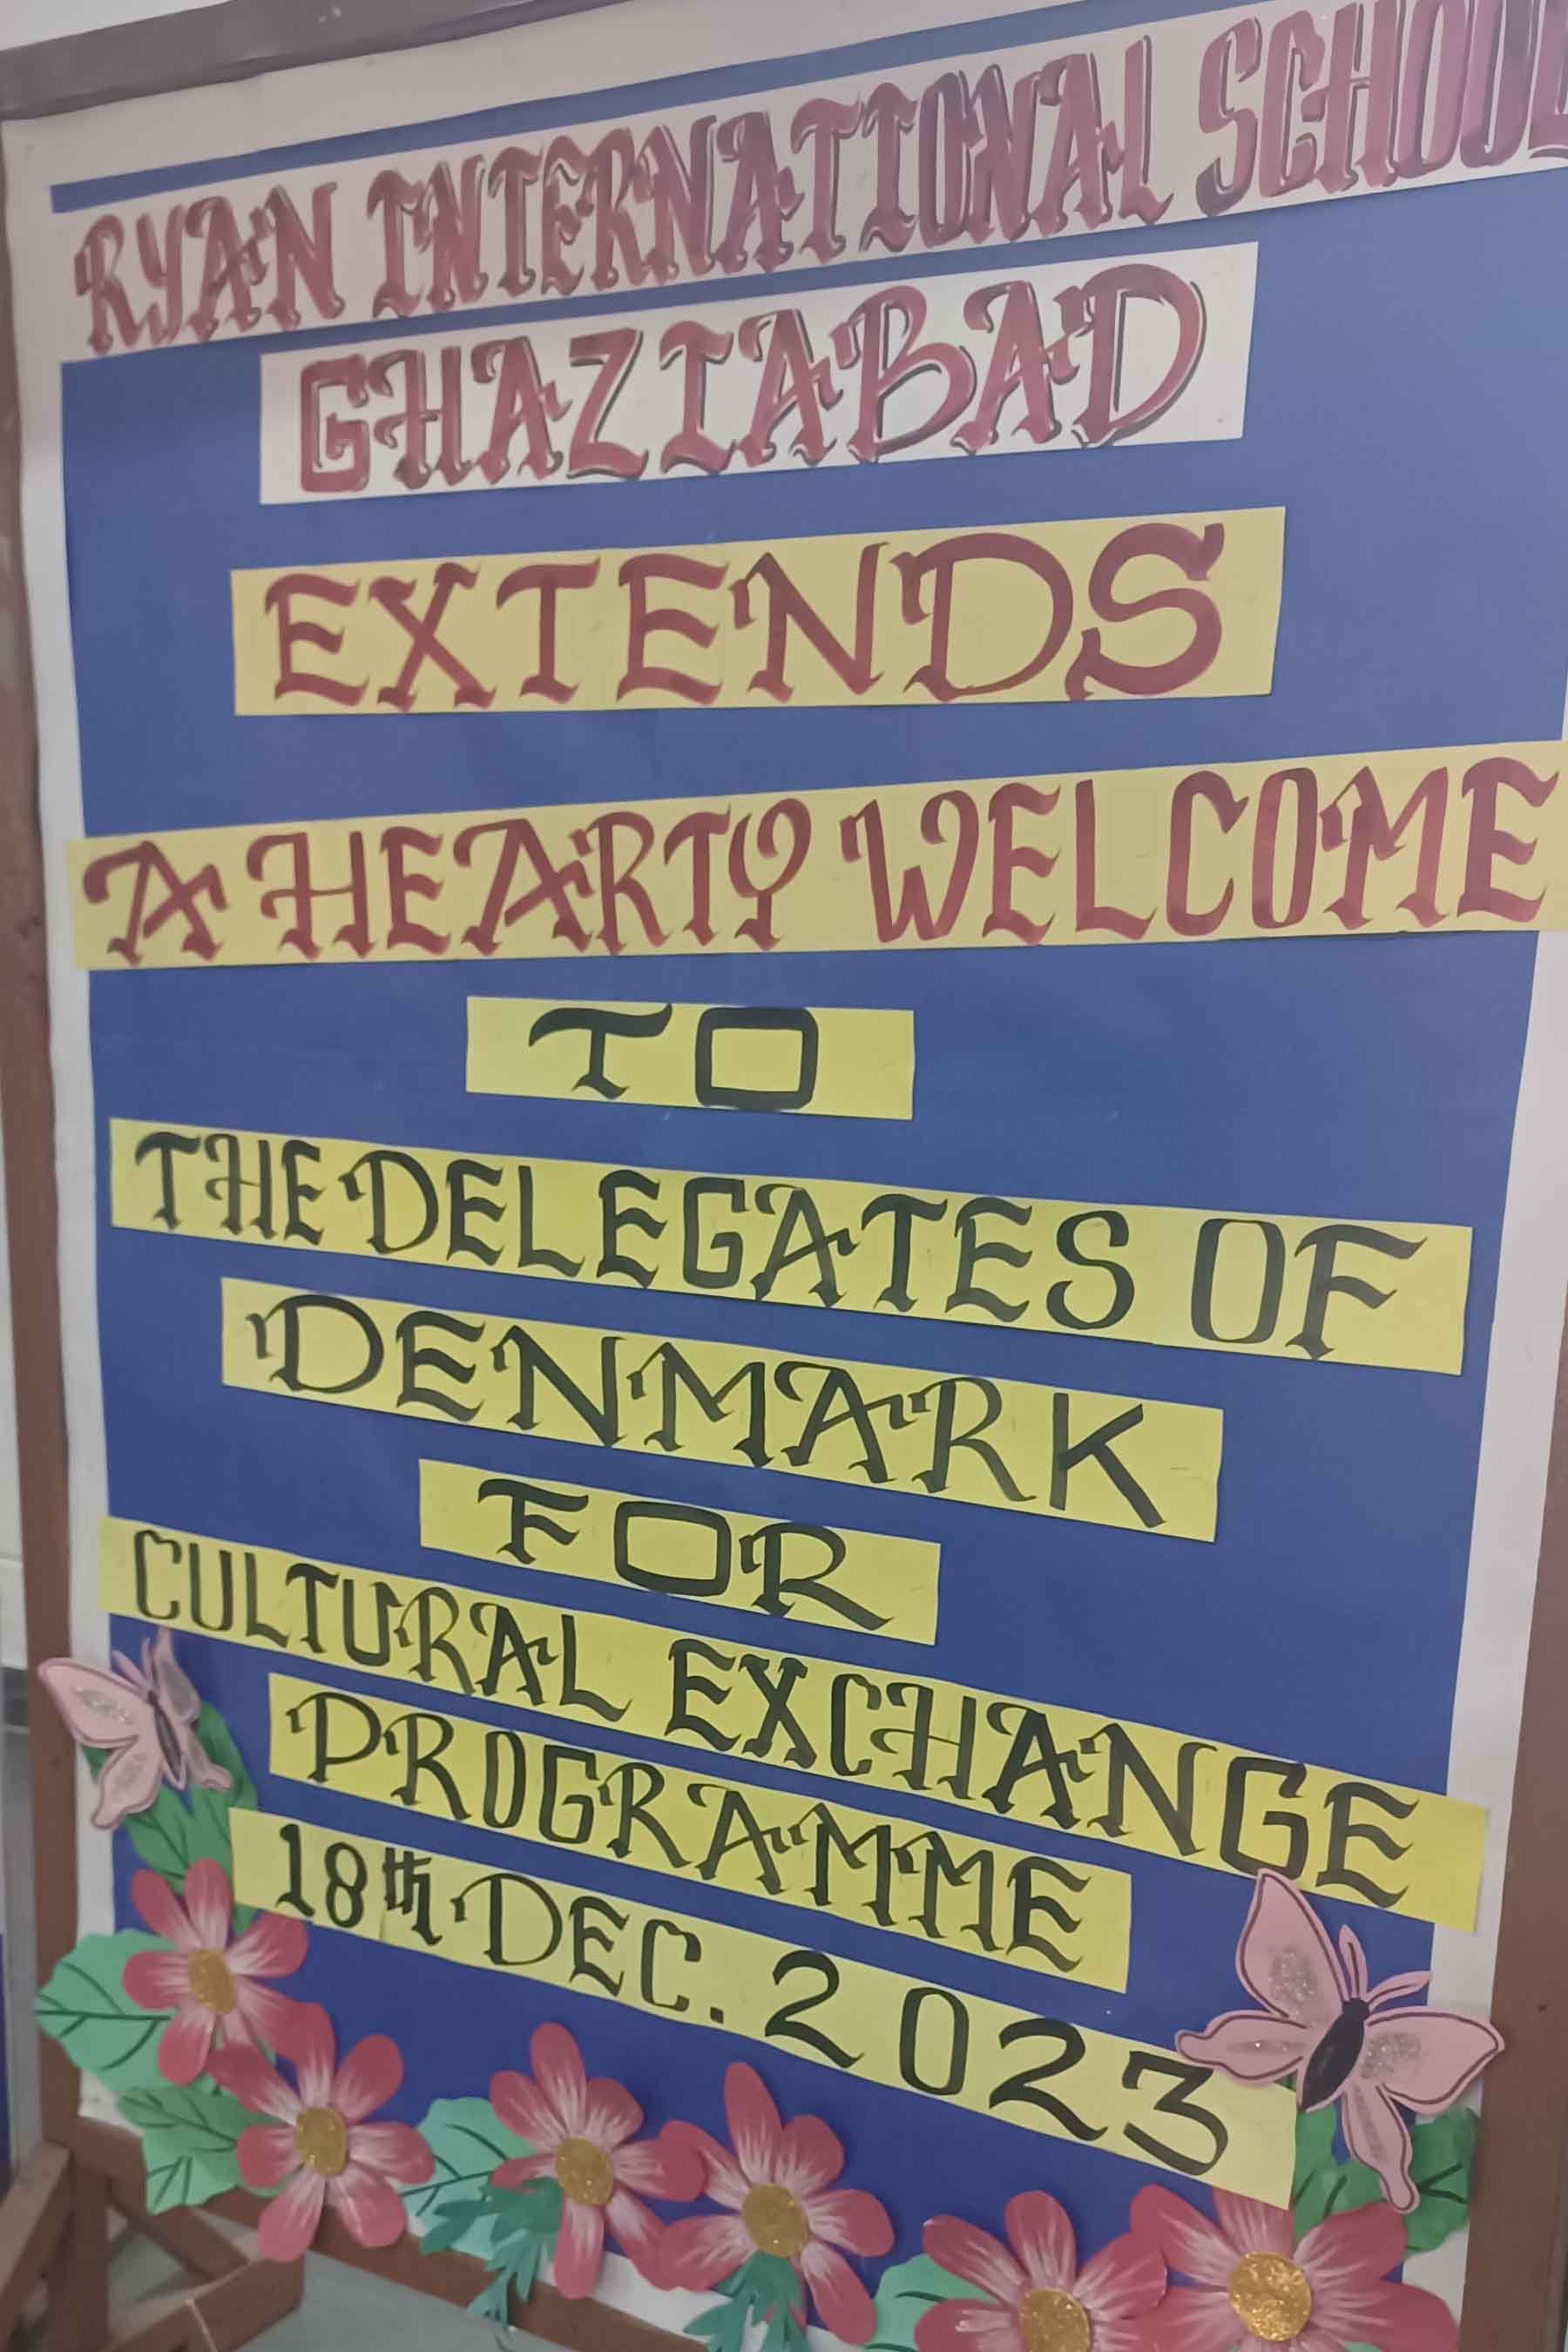 RYAN INTERNATIONAL SCHOOL
GHAZIABAD
EXTENDS
A HEARTY WELCOME
TO
THE DELEGATES OF
DENMARK
FOR
CULTURAL EXCHANGE
PROGRAMME
18th DEC. 2023